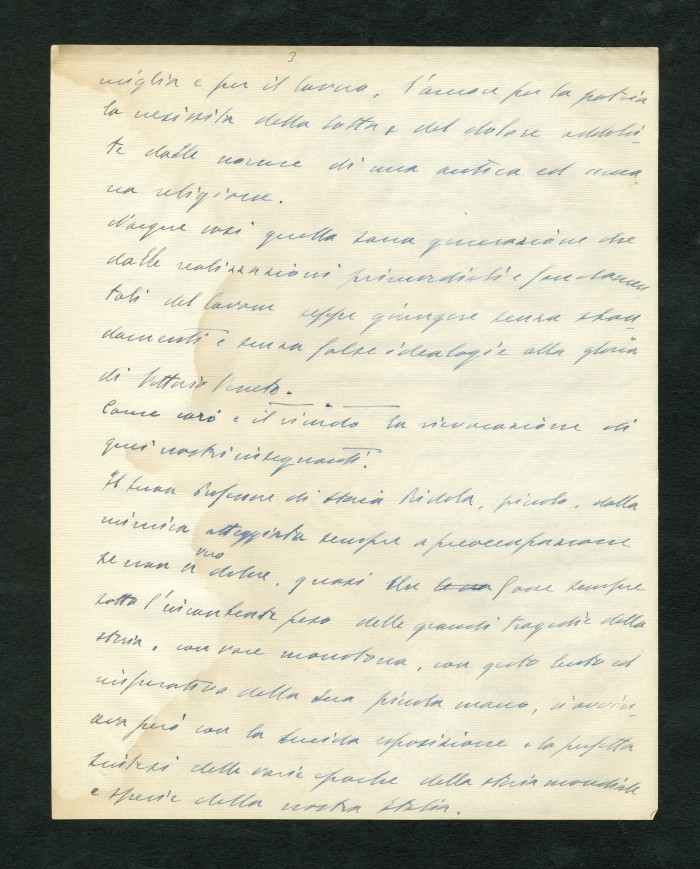 3
miglia e per il lavoro, l'amore per la patria
la necessità della lotta e del dolore addolci-
te dalle norme di una antica ed uma
na religione.
Nacque così quella sana generazione che
dalle realizzazioni primordiali e fondamen
tali del lavoro seppe giungere senza sban
damenti e senza false idealogie alla gloria
di Vittorio Veneto.
Come caro è il ricordo la rievocazione di
quei nostri insegnanti.
Il buon Professore di storia Ridola, piccolo, dalla
mimica atteggiata sempre a preoccupazione
se non a vero dolore, quasi che fosse sempre
sotto l'incombente peso delle grandi tragedie della
storia, con voce monotona, con gesto lento ed
imperativo della sua piccola mano, ci avvin-
ceva però con la lucida esposizione e la perfetta
sintesi delle varie epoche della storia mondiale
e specie della nostra Italia.